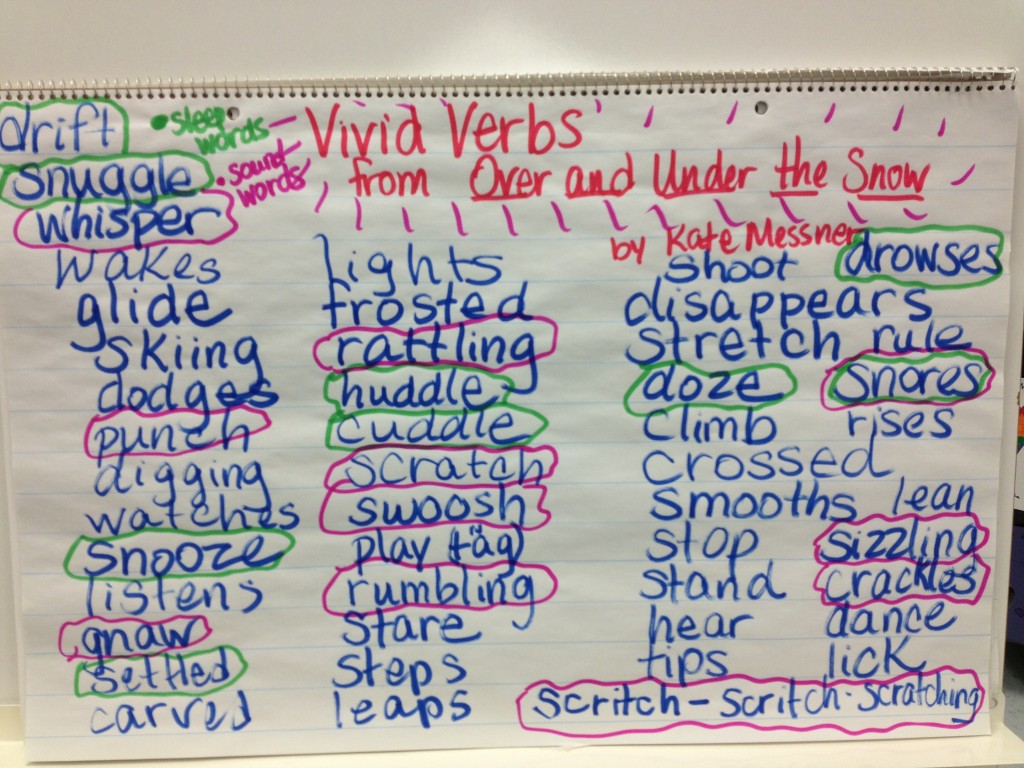 drift
snuggle
whisper
wakes
glide
skiing
dodges
punch
digging
watches
snooze
listens
gnaw
settled
carved
• sleep
words
• sound
words
Vivid Verbs
from Over and Under the Snow
by Kate Messner
lights
frosted
rattling
huddle
cuddle
scratch
swoosh
play (täg)
rumbling
stare
steps
leaps
shoot
disappears
stretch
doze
climb
crossed
smooths
stop
stand
hear
tips
drowses
rule
snores
rises
lean
sizzling
crackles
dance
lick
scritch - scritch - scratching